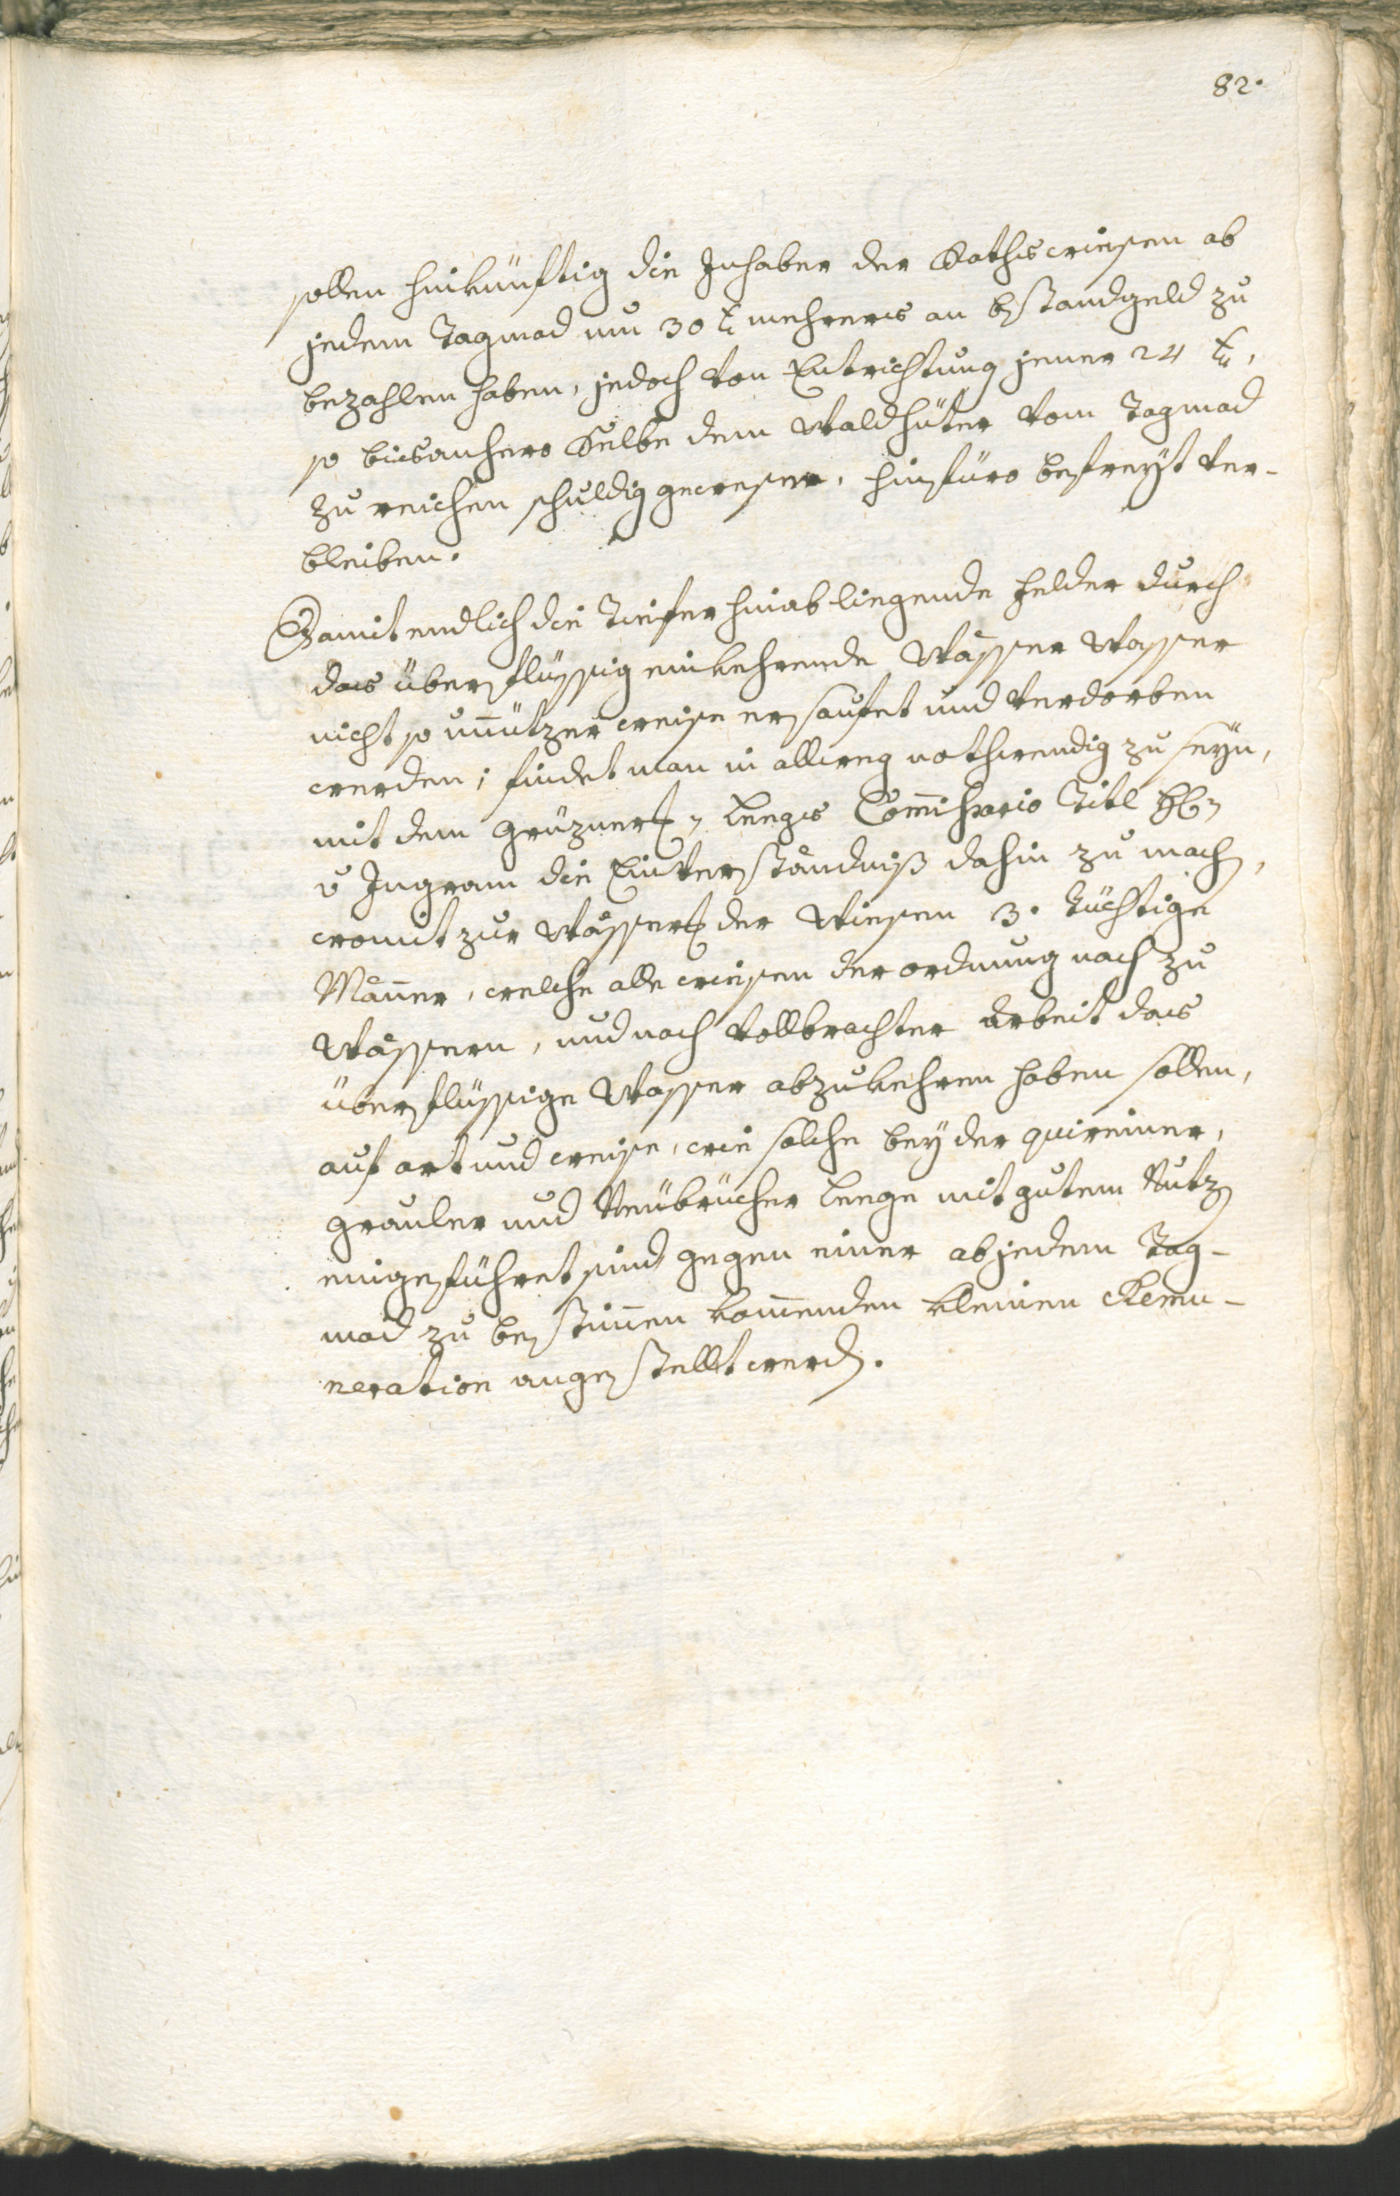 82.
sollen hinkünftig die Inhaber der Rathswiesen ab
jedem Tagmad um 30 x mehrers an bstandgeld zu
bezahlen haben, jedoch von Entrichtung jener 24 x,
so bisanhero Selbe dem Waldhüter vom Tagmad
zu reichen schuldig gewesen, hinfüro befreyt ver-
bleiben.
Damit endlich die Tiefer hinab liegende Felder durch
das überflüssig einkehrende Wässer Wasser
nicht so unützer weise ersaufet und verdorben
werden; findet man in allweg nothwendig zu seyn,
mit dem Grüzner Leegs Commissario Titl H
v Ingram die Einverständniß dahin zu mach,
womit zur Wässer der Wiesen 3. tüchtige
Männer, welche alle wiesen der ordnung nach zu
Wässern, und nach vollbrachter Arbeit das
überflüssige Wasser abzukehren haben sollen,
auf art und weise, wie solche bey der quireiner,
grauler und Neübrücher Leege mit gutem Nutz
eingeführet sind gegen einer ab jedem Tag-
mad zu bestimen komenden kleinen Remu-
neration angestellt werd.